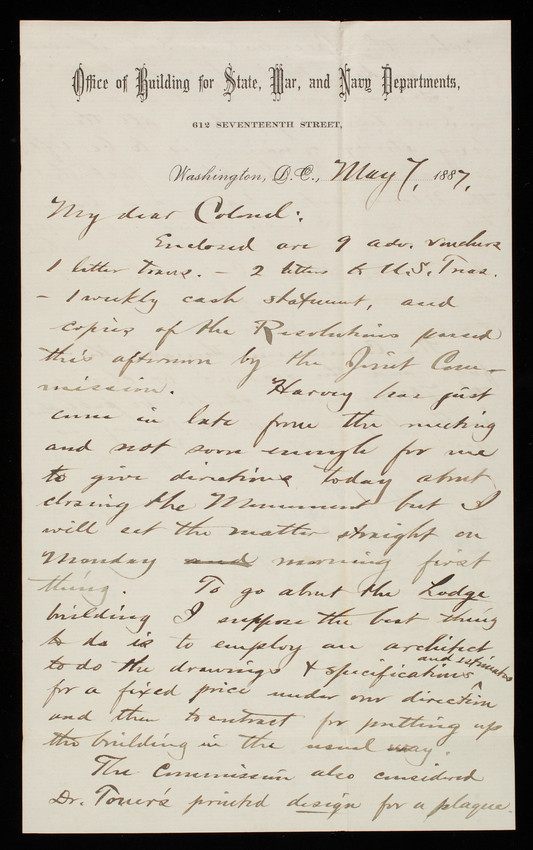 Office of Building for State, War, and Navy Departments,
612 SEVENTEENTH STREET,
Washington, D.C., May 7, 1887.
My dear Colonel:
Enclosed are 9 adv. vouchers
1 letter trans. – 2 letters to U.S. Treas.
– 1 weekly cash statment, and
copies of the Resolutions passed
this afternoon by the Joint Com-
mission. Harvey has just
come in late from the meeting
and not soon enough for me
to give directions today about
closing the Monument but I
will set the matter straight on
Monday and morning first
thing. To go about the Lodge
building I suppose the best thing
to do is to employ an architect
to do the drawings & specifications and estimates
for a fixed price under our direction
and then to contract for putting up
the building in the usual way.
The Commission also considered
Dr. Toner's printed design for a plaque.